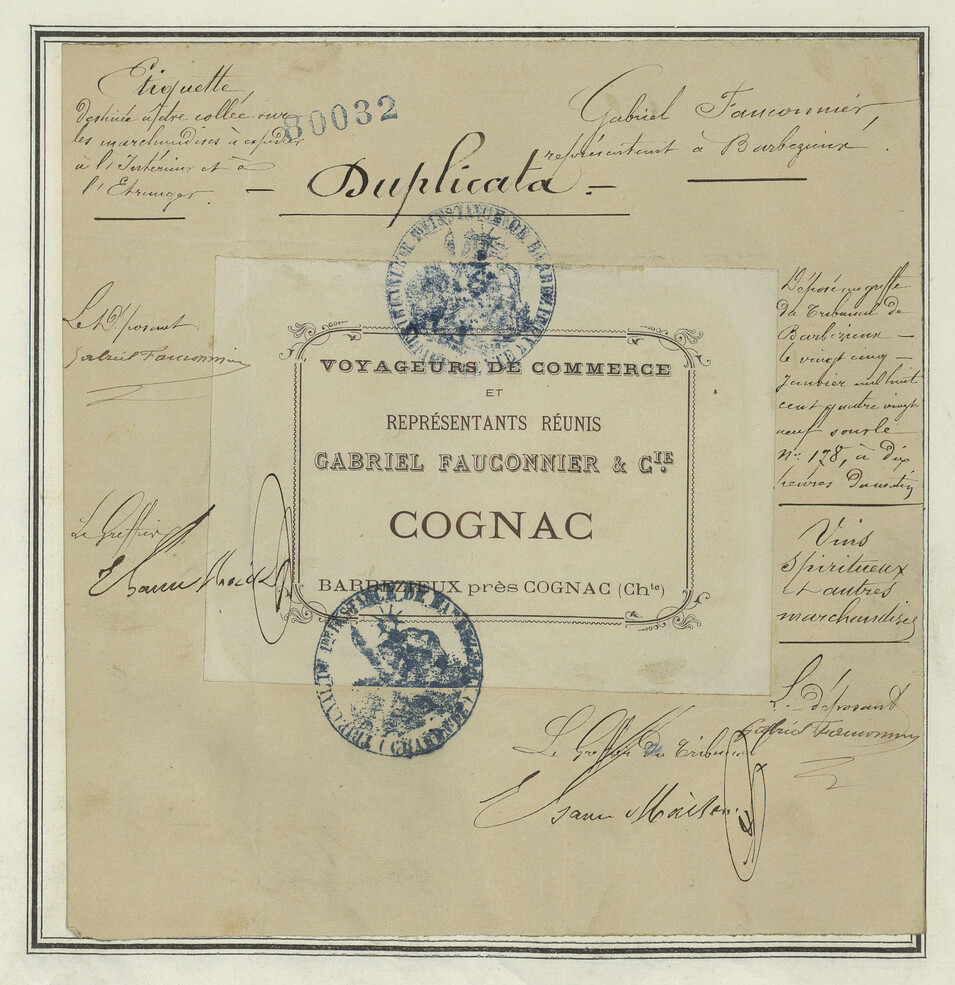 Etiquette
destinée à être collée sur
les marchandises à expédier
à l'Intérieur et à
l'Etranger.
80032
Gabriel Fauconnier,
représentant à Barbezieux.
— Duplicata —
TRIBUNAL DE 1ERE INSTANCE DE BARBEZIEUX
Le Déposant
Gabriel Fauconnier
Le Greffier
VOYAGEURS DE COMMERCE
ET
REPRÉSENTANTS RÉUNIS
GABRIEL FAUCONNIER & CIE.
COGNAC
BARBEZIEUX près COGNAC (Chte)
Déposé au greffe
du Tribunal de
Barbezieux —
le vingt cinq —
Janvier mil huit
cent quatre vingt
neuf sous le
No. 178, à dix
heures du matin
Vins
spiritueux
et autres
marchandises
TRIBUNAL DE 1ERE INSTANCE DE BARBEZIEUX (CHARENTE)
Le déposant
Gabriel Fauconnier
Le Greffier du Tribunal